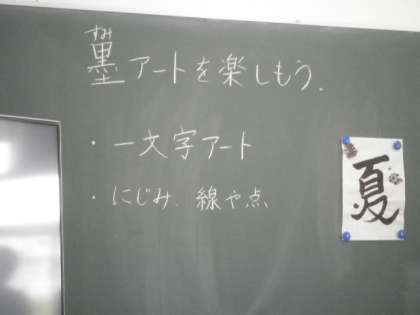 墨アートを楽しもう.
・一文字アート
・にじみ.線や点
夏